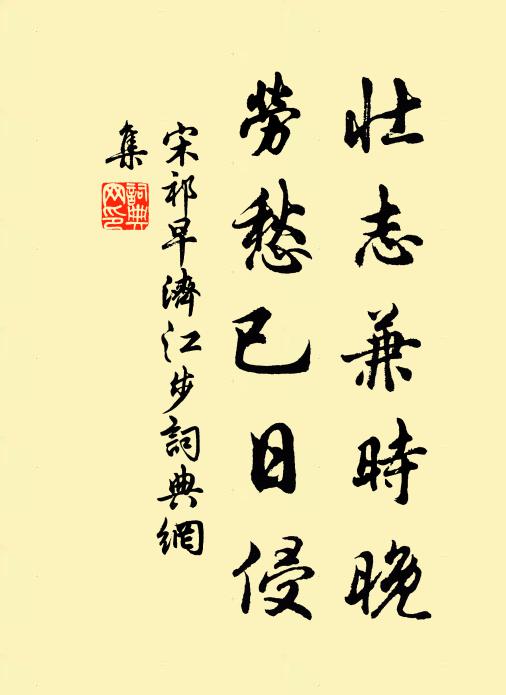 壯志兼時晚
勞愁已日侵
宋祁早濟江步詞典網
集
詞典
网印